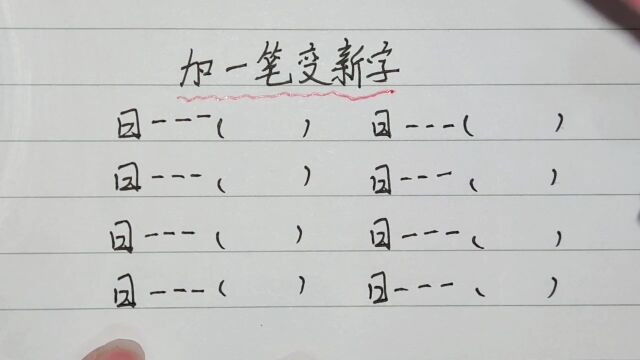 加一笔变新字
日---( ) 日---( )
日---( ) 日---( )
日---( ) 日---( )
日---( ) 日---( )